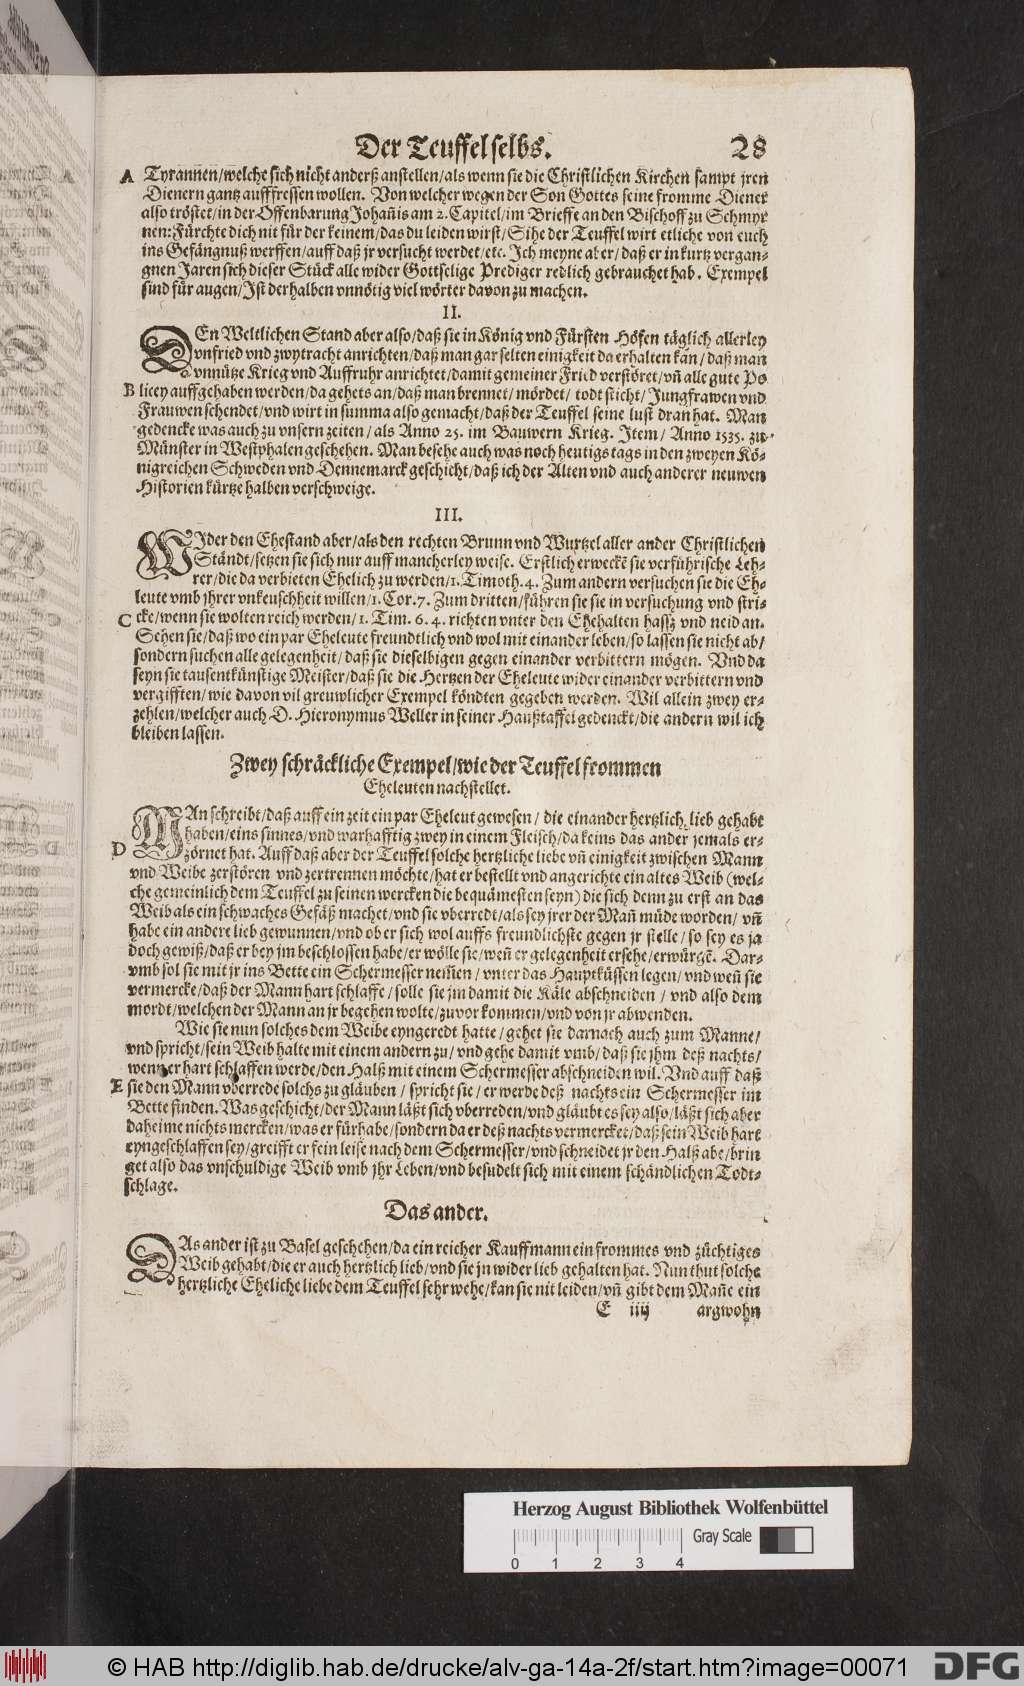 Der Teuffel selbs. 28
A Tyrannen/welche sich nicht anderß anstellen/als wenn sie die Christlichen Kirchen sampt jren
Dienern gantz auffressen wollen. Von welcher wegen der Son Gottes seine fromme Diener
also tröstet/in der Offenbarung Johañis am 2. Capitel/im Brieffe an den Bischoff zu Schmyr
nen: Fürchte dich nit für der keinem/das du leiden wirst/Sihe der Teuffel wirt etliche von euch
ins Gefängnuß werffen/auff daß jr versucht werdet/etc. Ich meyne aber/daß er in kurtz vergan-
gnen Jaren sich dieser Stück alle wider Gottselige Prediger redlich gebrauchet hab. Exempel
sind für augen/Ist derhalben vnnötig viel wörter davon zu machen.
II.
DEn Weltlichen Stand aber also/daß sie in König vnd Fürsten Höfen täglich allerley
vnfried vnd zwytracht anrichten/daß man gar selten einigkeit da erhalten kan/daß man
vnnütze Krieg vnd Auffruhr anrichtet/damit gemeiner Fried verstöret/vñ alle gute Po
B licey auffgehaben werden/da gehets an/daß man brennet/mördet/todt sticht/Jungfrawen vnd
Frauwen schendet/vnd wirt in summa also gemacht/daß der Teuffel seine lust dran hat. Man
gedencke was auch zu vnsern zeiten/als Anno 25. im Bauwern Krieg. Item/Anno 1535. zu
Münster in Westphalen geschehen. Man besehe auch was noch heutigs tags in den zweyen Kö-
nigreichen Schweden vnd Dennemarck geschicht/daß ich der Alten vnd auch anderer neuwen
Historien kürtze halben verschweige.
III.
WIder den Ehestand aber/als den rechten Brunn vnd Wurtzel aller ander Christlichen
Ständt/setzen sie sich nur auff mancherley weise. Erstlich erweckẽ sie verführische Leh-
rer/die da verbieten Ehelich zu werden/1. Timoth. 4. Zum andern versuchen sie die Eh-
leute vmb jhrer vnkeuschheit willen/1. Cor. 7. Zum dritten/führen sie sie in versuchung vnd stri-
C cke/wenn sie wolten reich werden/1. Tim. 6. 4. richten vnter den Ehehalten hassz vnd neid an.
Sehen sie/daß wo ein par Eheleute freundtlich vnd wol mit einander leben/so lassen sie nicht ab/
sondern suchen alle gelegenheit/daß sie dieselbigen gegen einander verbittern mögen. Vnd da
seyn sie tausentkünstige Meister/daß sie die Hertzen der Eheleute wider einander verbittern vnd
vergifften/wie davon vil greuwlicher Exempel köndten gegeben werden. Wil allein zwey er-
zehlen/welcher auch D. Hieronymus Weller in seiner Haußtaffel gedenckt/die andern wil ich
bleiben lassen.
Zwey schräckliche Exempel/wie der Teuffel frommen
Eheleuten nachstellet.
MAn schreibt/daß auff ein zeit ein par Eheleut gewesen/die einander hertzlich lieb gehabt
haben/eins sinnes/vnd warhafftig zwey in einem Fleisch/da keins das ander jemals er-
D zörnet hat. Auff daß aber der Teuffel solche hertzliche liebe vñ einigkeit zwischen Mann
vnd Weibe zerstören vnd zertrennen möchte/hat er bestellt vnd angerichte ein altes Weib (wel-
che gemeinlich dem Teuffel zu seinen wercken die bequämesten seyn) die sich denn zu erst an das
Weib als ein schwaches Gefäß machet/vnd sie vberredt/als sey jrer der Mañ müde worden/vñ
habe ein andere lieb gewunnen/vnd ob er sich wol auffs freundlichste gegen jr stelle/so sey es ja
doch gewiß/daß er bey jm beschlossen habe/er wölle sie/weñ er gelegenheit ersehe/erwürgẽ. Dar-
vmb sol sie mit jr ins Bette ein Schermesser nem̃en/vnter das Hauptküssen legen/vnd weñ sie
vermercke/daß der Mann hart schlaffe/solle sie jm damit die Käle abschneiden/vnd also dem
mordt/welchen der Mann an jr begehen wolte/zuvor kommen/vnd von jr abwenden.
Wie sie nun solches dem Weibe eyngeredt hatte/gehet sie darnach auch zum Manne/
vnd spricht/sein Weib halte mit einem andern zu/vnd gehe damit vmb/daß sie jhm deß nachts/
wenn er hart schlaffen werde/den Halß mit einem Schermesser abschneiden wil. Vnd auff daß
E sie den Mann vberrede solchs zu gläuben/spricht sie/er werde deß nachts ein Schermesser im
Bette finden. Was geschicht/der Mann läßt sich vberreden/vnd gläubt es sey also/läßt sich aber
daheime nichts mercken/was er fürhabe/sondern da er deß nachts vermercket/daß sein Weib hart
eyngeschlaffen sey/greifft er fein leise nach dem Schermesser/vnd schneidet jr den Halß abe/brin
get also das vnschuldige Weib vmb jhr Leben/vnd besudelt sich mit einem schändlichen Todt-
schlage.
Das ander.
DAs ander ist zu Basel geschehen/da ein reicher Kauffmann ein frommes vnd züchtiges
Weib gehabt/die er auch hertzlich lieb/vnd sie jn wider lieb gehalten hat. Nun thut solche
hertzliche Eheliche liebe dem Teuffel sehr wehe/kan sie nit leiden/vñ gibt dem Mañe ein
E iiij argwohn
Herzog August Bibliothek Wolfenbüttel
Gray Scale
0 1 2 3 4
© HAB http://diglib.hab.de/drucke/alv-ga-14a-2f/start.htm?image=00071 DFG